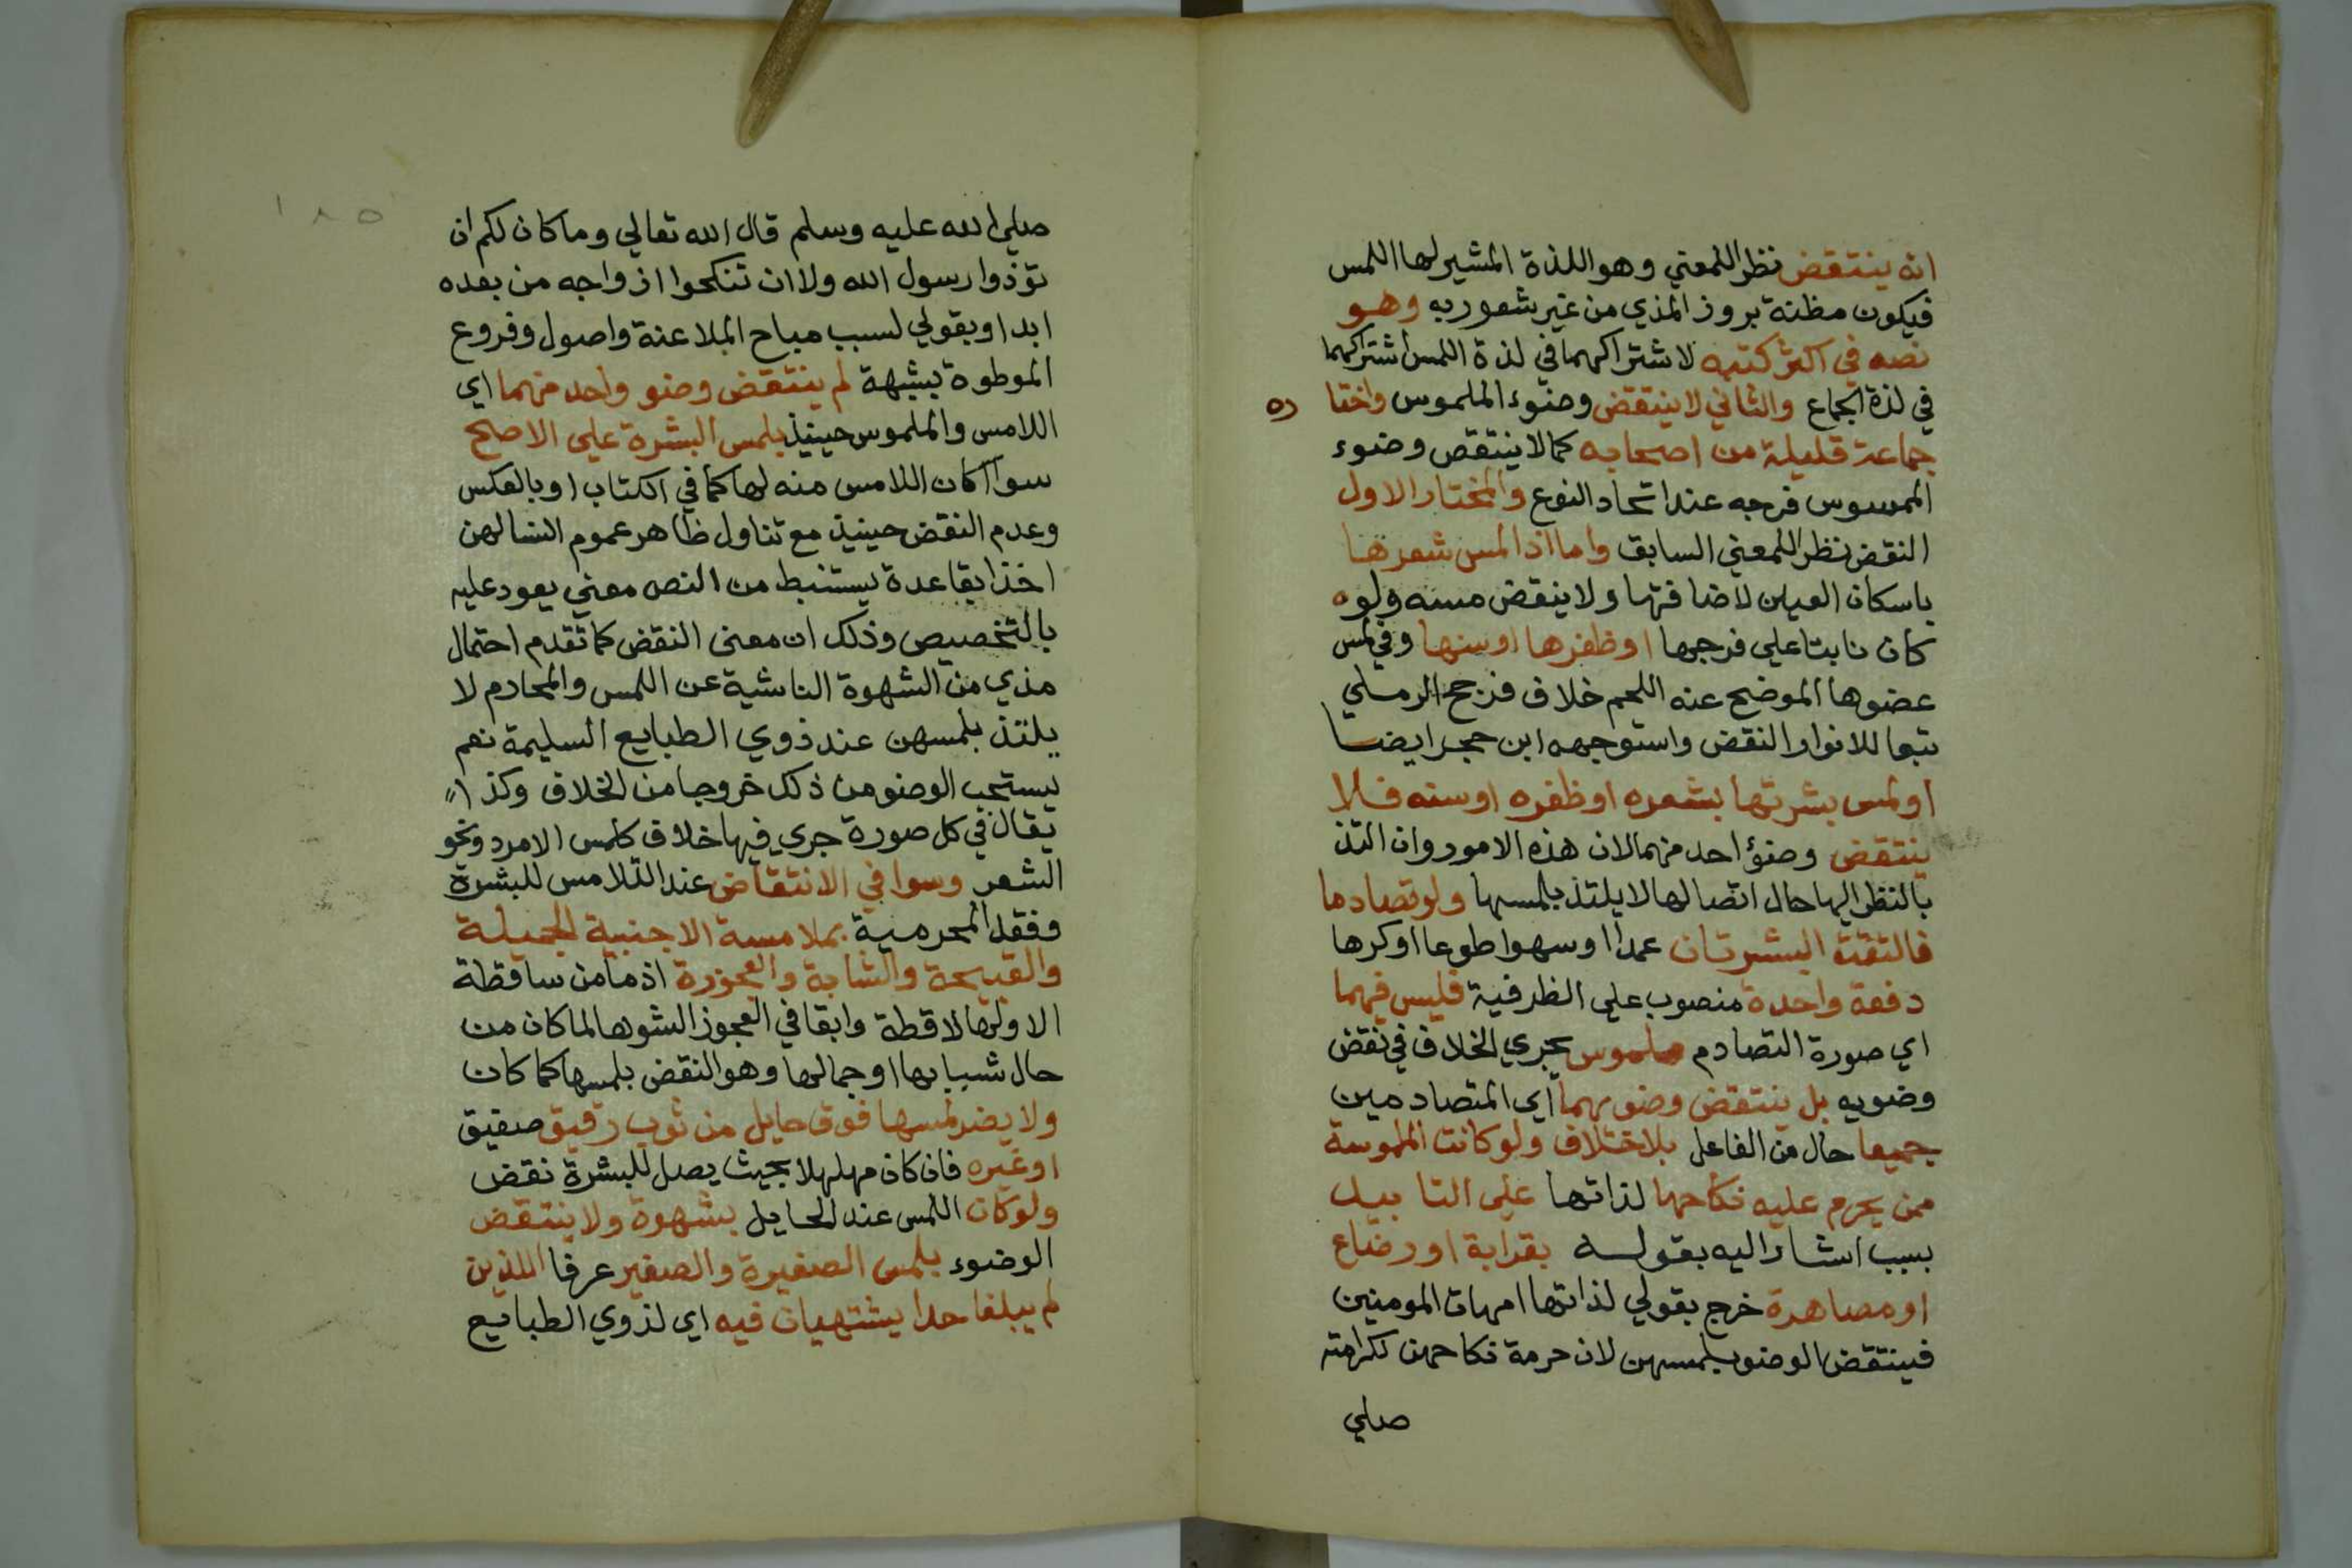 انه ينتقض نظرا للمعني وهو اللذة المشير لها اللمس
فيكون مظنة بروز المذي من غير شعور به وهو
نصه في اكثر كتبه لاشتراكهما في لذة اللمس اشتراكهما
في لذة الجماع والثاني لا ينتقض وضوء الملموس واختا ره
جماعة قليلة من اصحابه كما لا ينتقض وضوء
الممسوس فرجه عند اتحاد النوع والمختار الاول
النقض نظرا للمعني السابق واما اذا لمس شعرها
باسكان العين لاضافتها ولا ينقض مسه ولو
كان نابتا علي فرجها او ظفرها او سنها وفي لمس
عضوها الموضح عنه اللحم خلاف فرجح الرملي
تبعا للانوار النقض واستوجهه ابن حجر ايضا
او لمس بشرتها بشعره او ظفره او سنه فلا
ينتقض وضؤ احد منهما لان هذه الامور وان التذ
بالنظر اليها حال اتصالها لا يلتذ بلمسها ولو تصادما
فالتقت البشرتان عمدا او سهوا طوعا او كرها
دفعة واحدة منصوب علي الظرفية فليس فيهما
اي صورة التصادم ملموس يجري الخلاف في نقض
وضويه بل ينتقض وضوءهما اي المتصادمين
جميعا حال من الفاعل بلا ختلاف ولو كانت الملموسة
ممن يحرم عليه نكاحها لذاتها علي التا بيد
بسبب اشار اليه بقوله بقرابة او رضاع
او مصاهرة خرج بقولي لذاتها امهات المومنين
فينتقض الوضو بلمسهن لان حرمة نكاحهن لكرامته
صلي
١٨٥
صلي الله عليه وسلم قال الله تعالي وما كان لكم ان
تؤذوا رسول الله ولا ان تنكحوا ازواجه من بعده
ابدا وبقولي لسبب مباح الملاعنة واصول وفروع
الموطوة بشبهة لم ينتقض وضو واحد منهما اي
اللامس والملموس حينيذ بلمس البشرة علي الاصح
سوا اكان اللامس منه لها كما في الكتاب او بالعكس
وعدم النقض حينيذ مع تناول ظاهر عموم النسا لهن
اخذا بقاعدة يستنبط من النص معني يعود عليه
بالتخصيص وذلك ان معنى النقض كما تقدم احتمال
مذي من الشهوة الناشية عن اللمس والمحارم لا
يلتذ بلمسهن عند ذوي الطبايع السليمة نعم
يستحب الوضو من ذلك خروجا من الخلاف وكذا
يقال في كل صورة جري فيها خلاف كلمس الامرد ونحو
الشعر وسوا في الانتقاض عند التلامس للبشرة
وفقد المحرمية بملامسة الاجنبية الجميلة
والقبيحة والشابة والعجوزة اذ ما من ساقطة
الا ولها لاقطة وابقا في العجوز الشوها لما كان من
حال شبابها او جمالها وهو النقض بلمسها كما كان
ولا يضر لمسها فوق حايل من ثوب رقيق صفيق
او غيره فان كان مهلهلا بحيث يصل للبشرة نقض
ولو كان اللمس عند الحايل بشهوة ولا ينتقض
الوضوء بلمس الصغيرة والصغير عرفا اللذين
لم يبلغا حدا يشتهيان فيه اي لذوي الطبايع